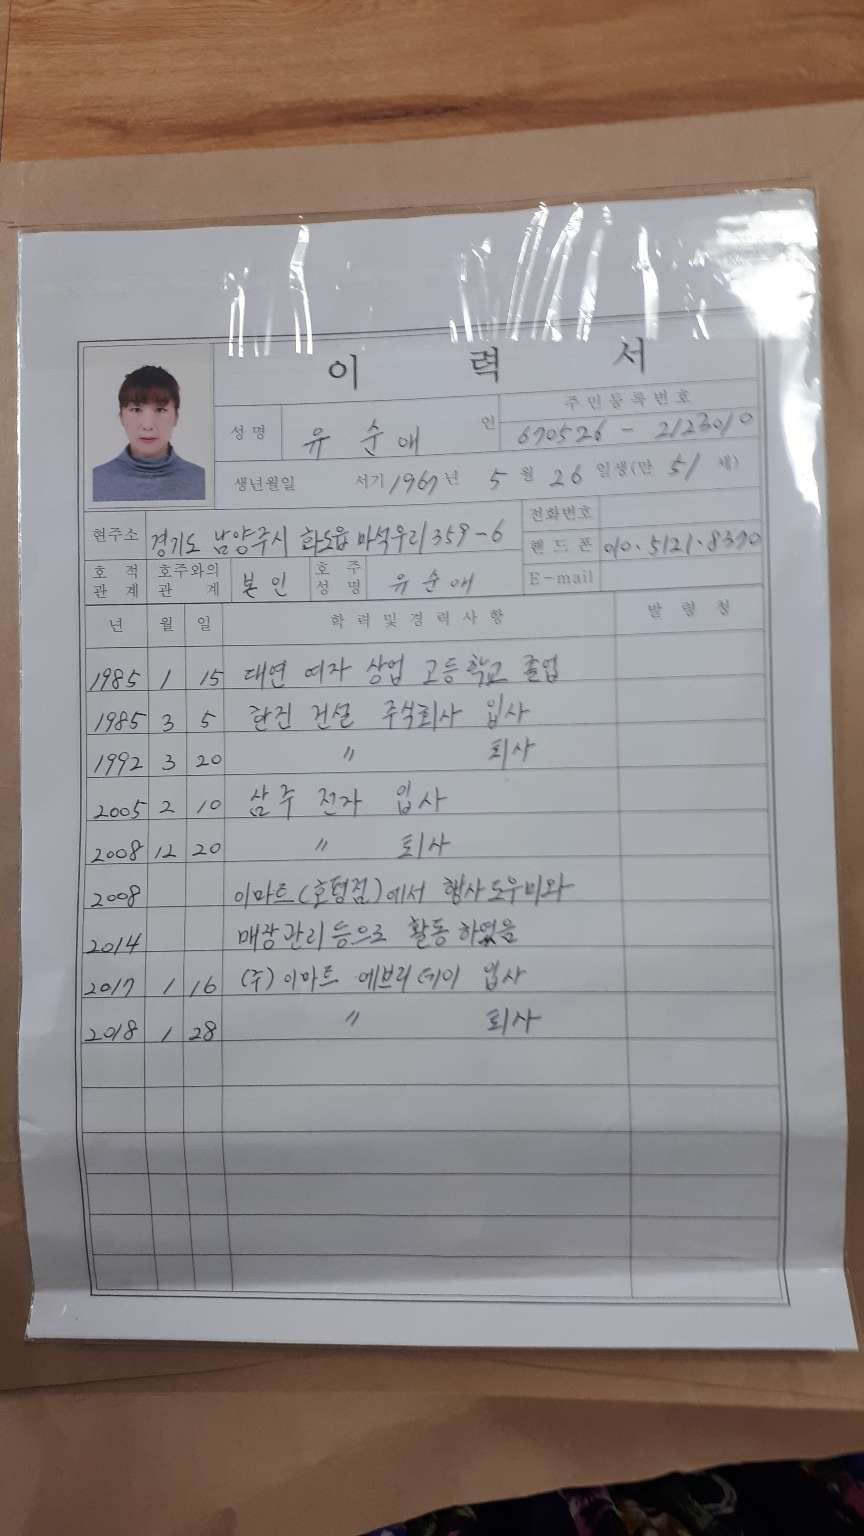 이 력 서
성 명 유 순 애 인
주 민 등 록 번 호
670526 - 2123010
생년월일 서기 1967 년 5 월 26 일생(만 51 세)
현주소 경기도 남양주시 화도읍 마석우리 359-6
전화번호
핸 드 폰 010.5121.8370
호 적 관 계 호주와의 관 계 본 인 호 주 성 명 유 순 애
E-mail
년 월 일 학 력 및 경 력 사 항 발 령 청
1985 1 15 대연 여자 상업 고등학교 졸업
1985 3 5 한진 건설 주식회사 입사
1992 3 20 〃 퇴사
2005 2 10 삼주 전자 입사
2008 12 20 〃 퇴사
2008 이마트(호평점)에서 행사도우미와
2014 매장관리등으로 활동하였음
2017 1 16 (주)이마트 에브리데이 입사
2018 1 28 〃 퇴사